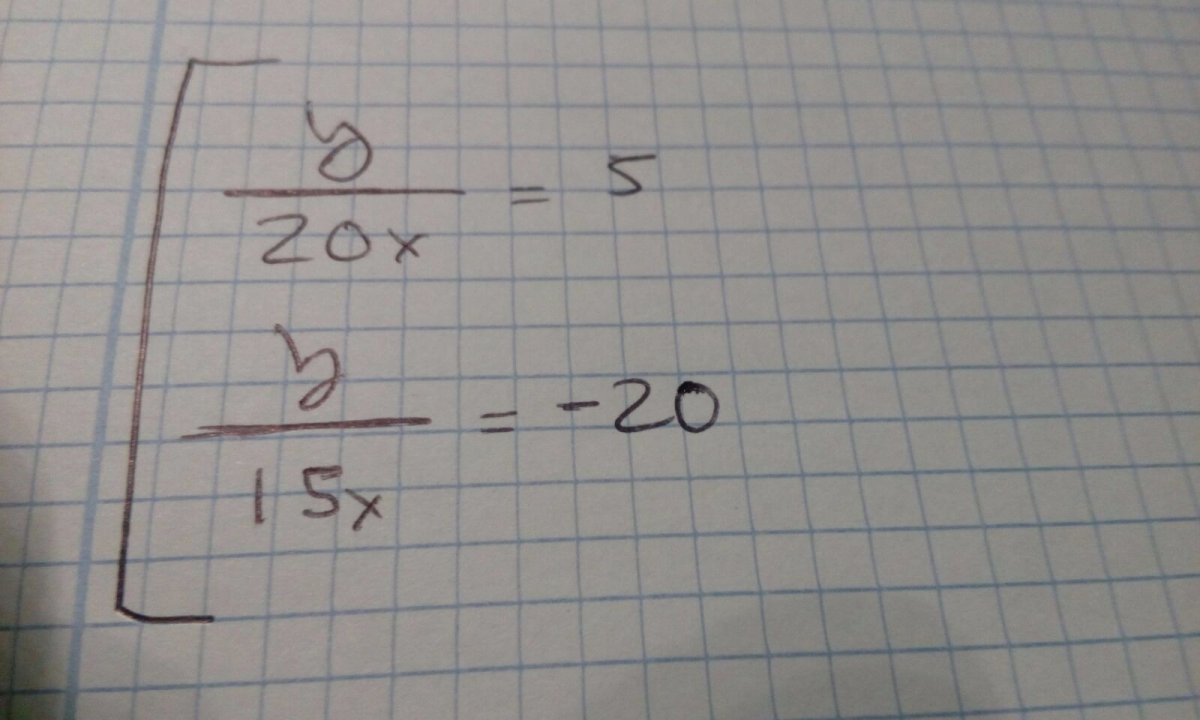 y
20x = 5
y
15x = -20